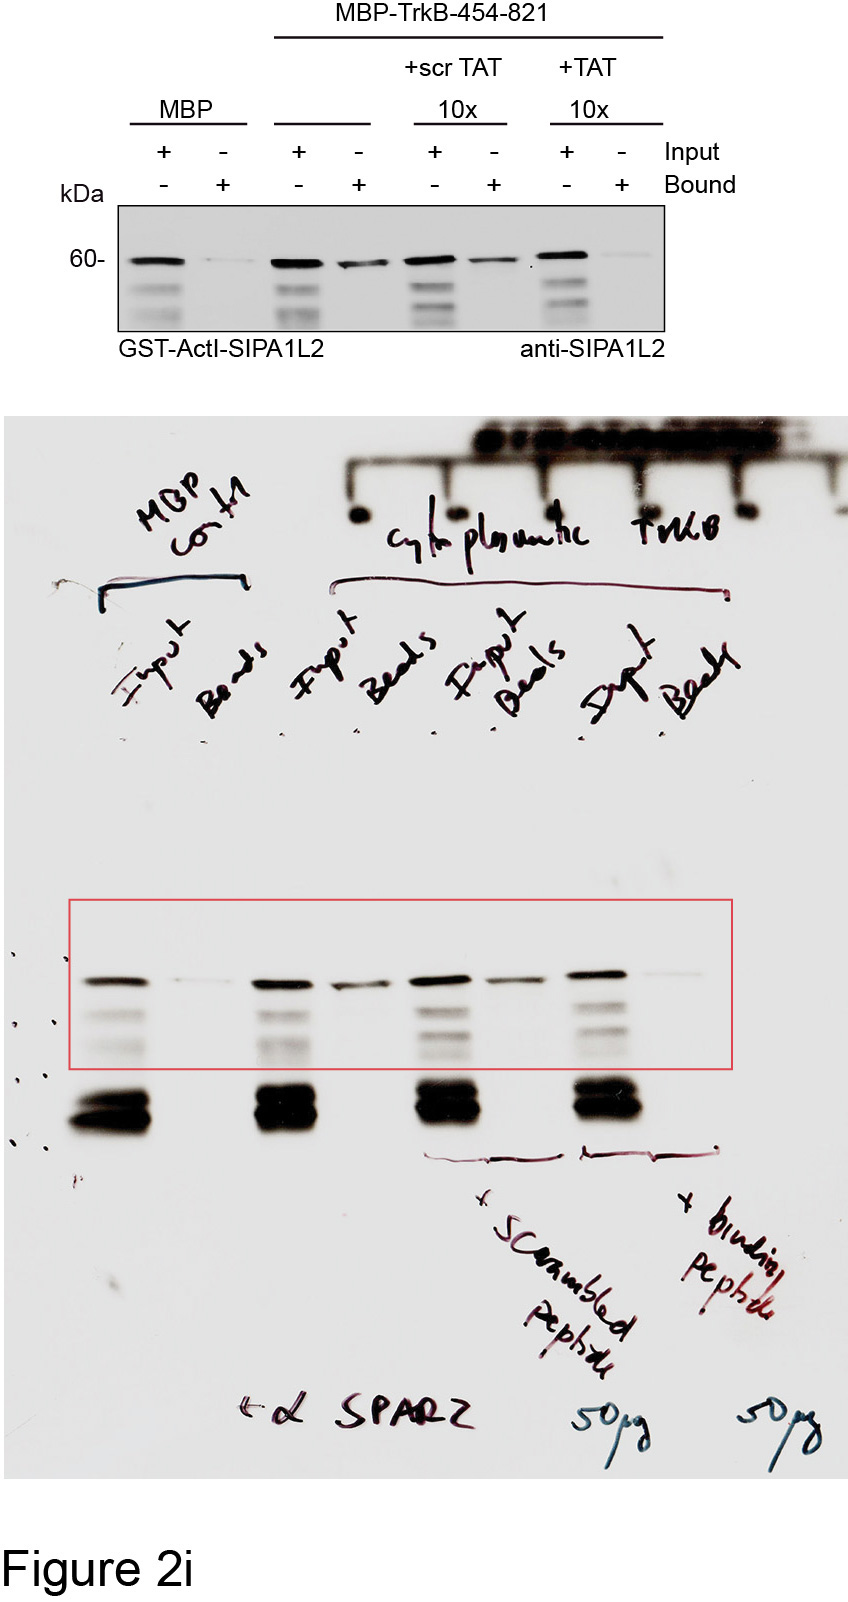 MBP-TrkB-454-821
+scr TAT +TAT
MBP 10x 10x
+ - + - + - + - Input
- + - + - + - + Bound
kDa
60-
GST-ActI-SIPA1L2 anti-SIPA1L2
MBP
cytoplasmatic TrkB
Input Beads Input Beads Input Beads Input Beads
+ scrambled peptide
+ binding peptide
α SPAR2
50µg 50µg
Figure 2i